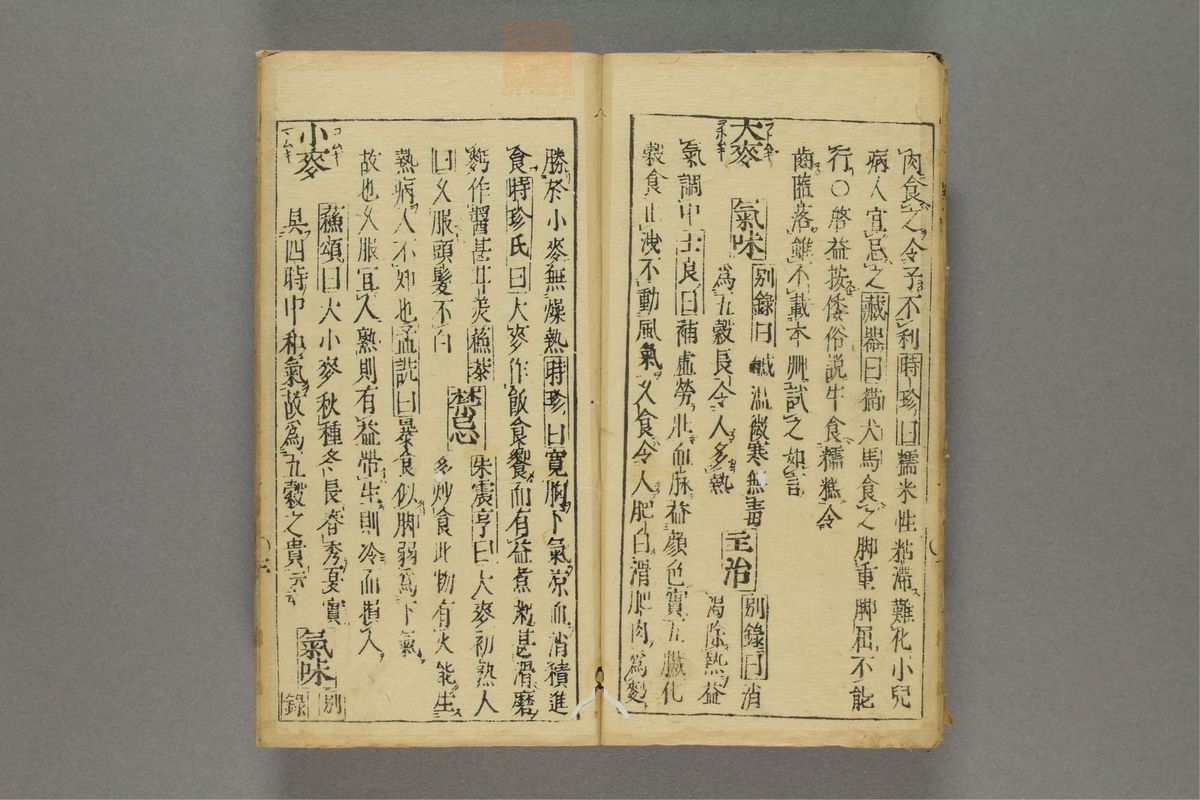 肉食之令子不利時珍曰糯米性粘滯難化小兒
病人宜忌之藏器曰猫犬馬食之脚重脚屈不能
行〇啓益按倭俗説牛食糯糕令
齒隘落雖不載本艸試之如言
大麥
フトムギ
氣味
別錄曰鹹溫微寒無毒
為五穀長令人多熱
主治
別錄曰消
渴除熱益
氣調中士良曰補虛勞壯血脉益顏色實五臟化
穀食止洩不動風氣久食令人肥白滑肥肉為麪
勝於小麥無燥熱時珍曰寬胸下氣涼血消積進
食時珍氏曰大麥作飯食饗而有益煮粥甚滑磨
麪作醬甚甘美蘓恭
曰久服頭髮不白
禁忌
朱震亨曰大麥初熟人
多炒食此物有火能生
熱病人不知也孟詵曰暴食似脚弱為下氣
故也久服宜人熟則有益帶生則冷而損人
小麥
コムギ
マムギ
蘓頌曰大小麥秋種冬長春秀夏實
具四時中和氣故為五穀之貴云云
氣味
別
錄